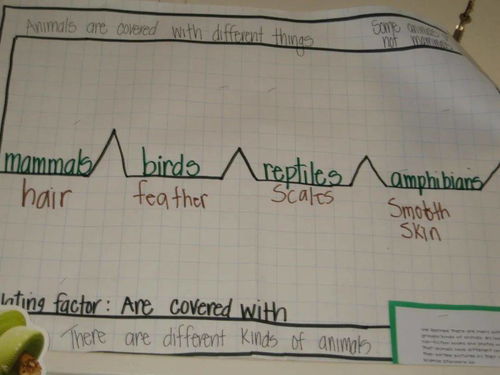 Animals are covered with different things
Some
not
mammals birds reptiles amphibians
hair feather scales smooth
skin
factor: Are covered with
There are different kinds of animals